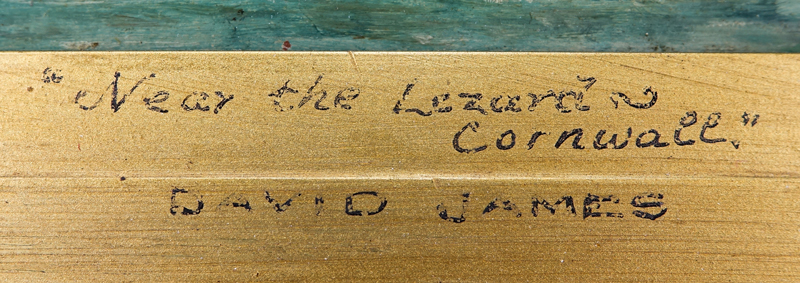 "Near the Lizard ~
Cornwall."
DAVID JAMES